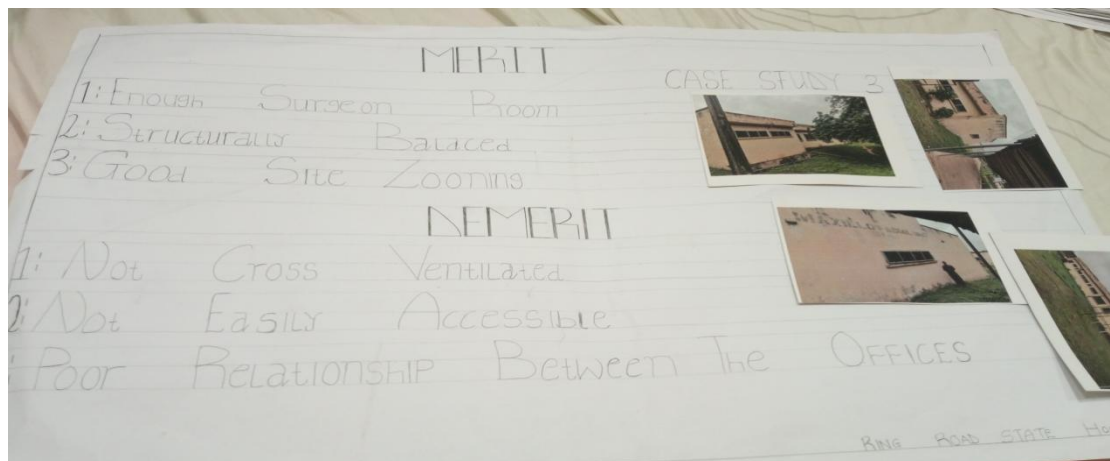 MERIT
CASE STUDY 3
1: Enough Surgeon Room
2: Structurally Balaced
3: Good Site Zooning
DEMERIT
1: Not Cross Ventilated
2: Not Easily Accessible
: Poor Relationship Between The OFFICES
RING ROAD STATE